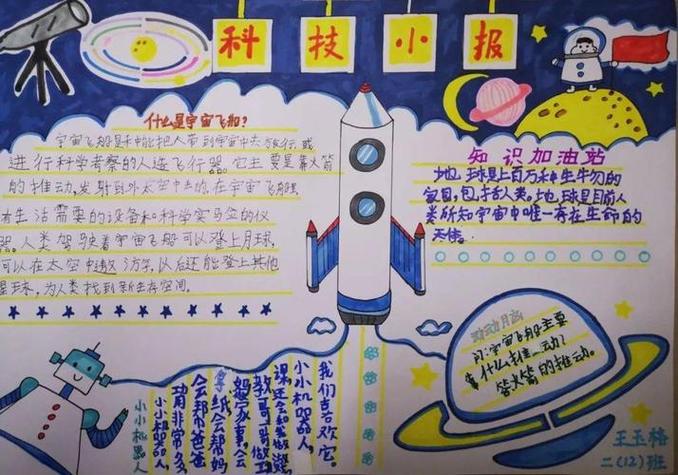 科技小报
什么是宇宙飞船?
宇宙飞船是种能把人带到宇宙中去旅行或
进行科学考察的人造飞行器。它主要是靠火箭
的推动,发射到外太空中去的。在宇宙飞船里
有生活需要的设备和科学实验的仪
器。人类驾驶着宇宙飞船可以登上月球,
可以在太空中遨游,以后还能登上其他
星球,为人类找到新生存空间。
知识加油站
地球是上百万种生物的
家园,包括人类。地球是目前人
类所知宇宙中唯一存在生命的
天体。
动动脑
问:宇宙飞船主要
靠什么推动?
答火箭的推动。
我们喜欢它。
小小机器人,
课还会和做游
教哥哥做工
做家事,会
拿纸会帮妈
会帮爸爸
功用非常多,
小小机器人,
小小机器人
王玉格
二(12)班